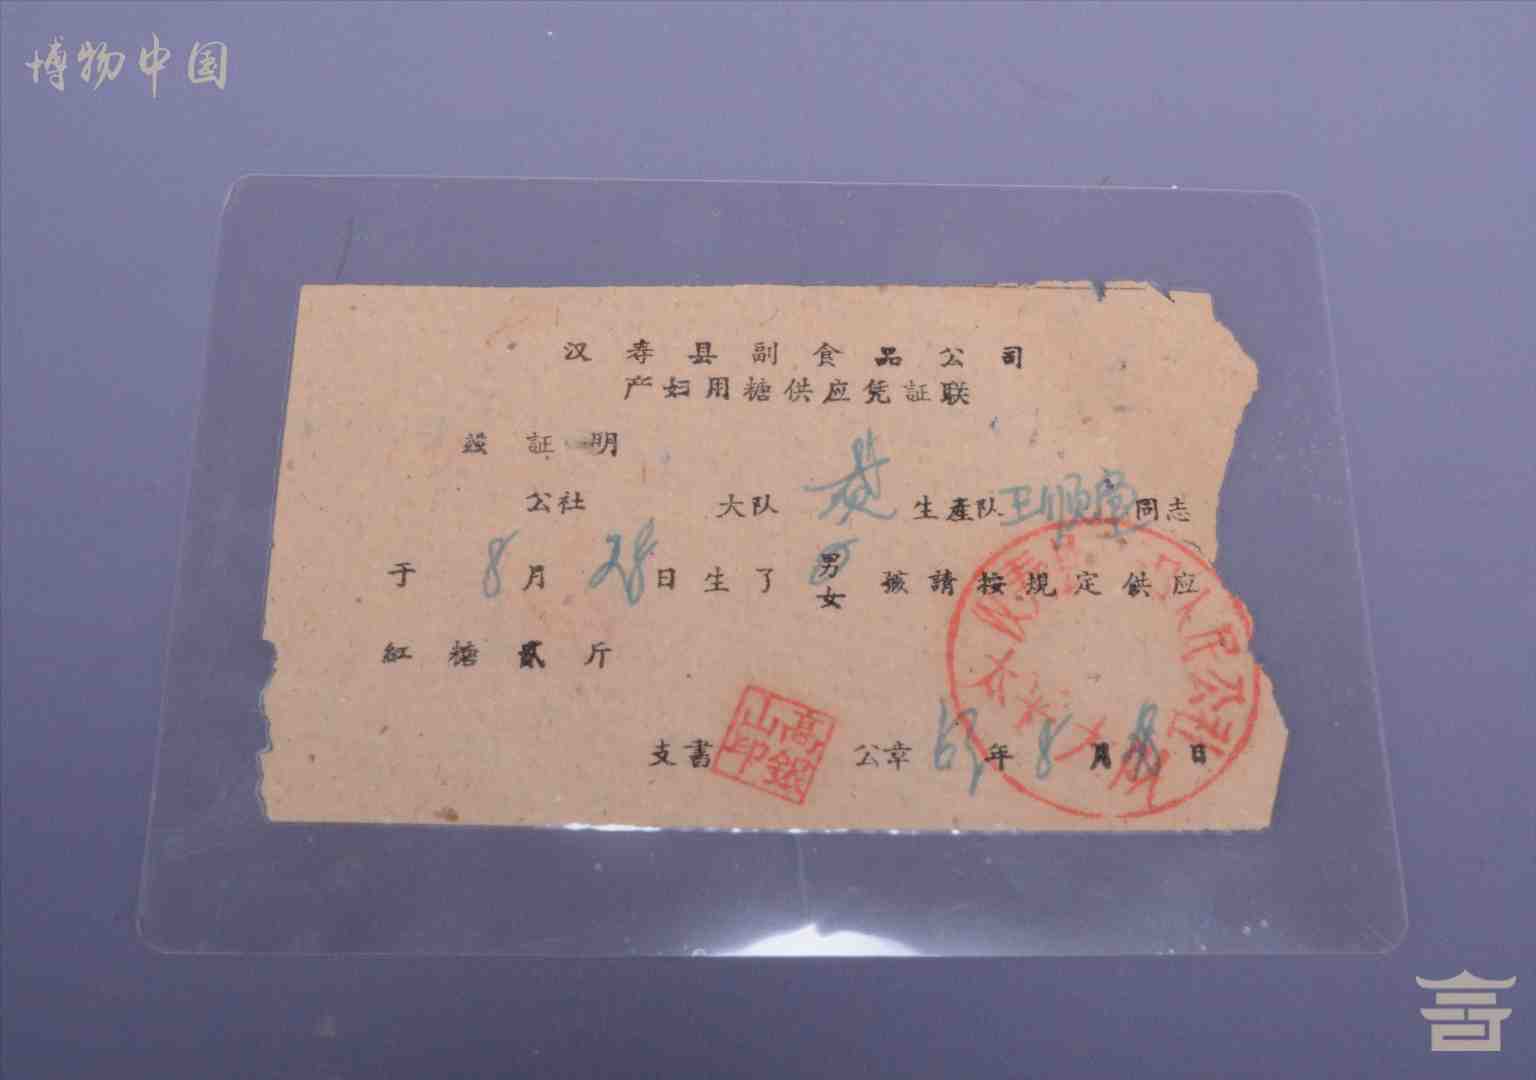 博物中国
汉寿县副食品公司
产妇用糖供应凭証联
兹証明
公社 大队 生產队 同志
于 8 月 28 日生了 男 女 孩請按規定供应
紅糖貳斤
支書 公章 年 8 月 日
高銀山印